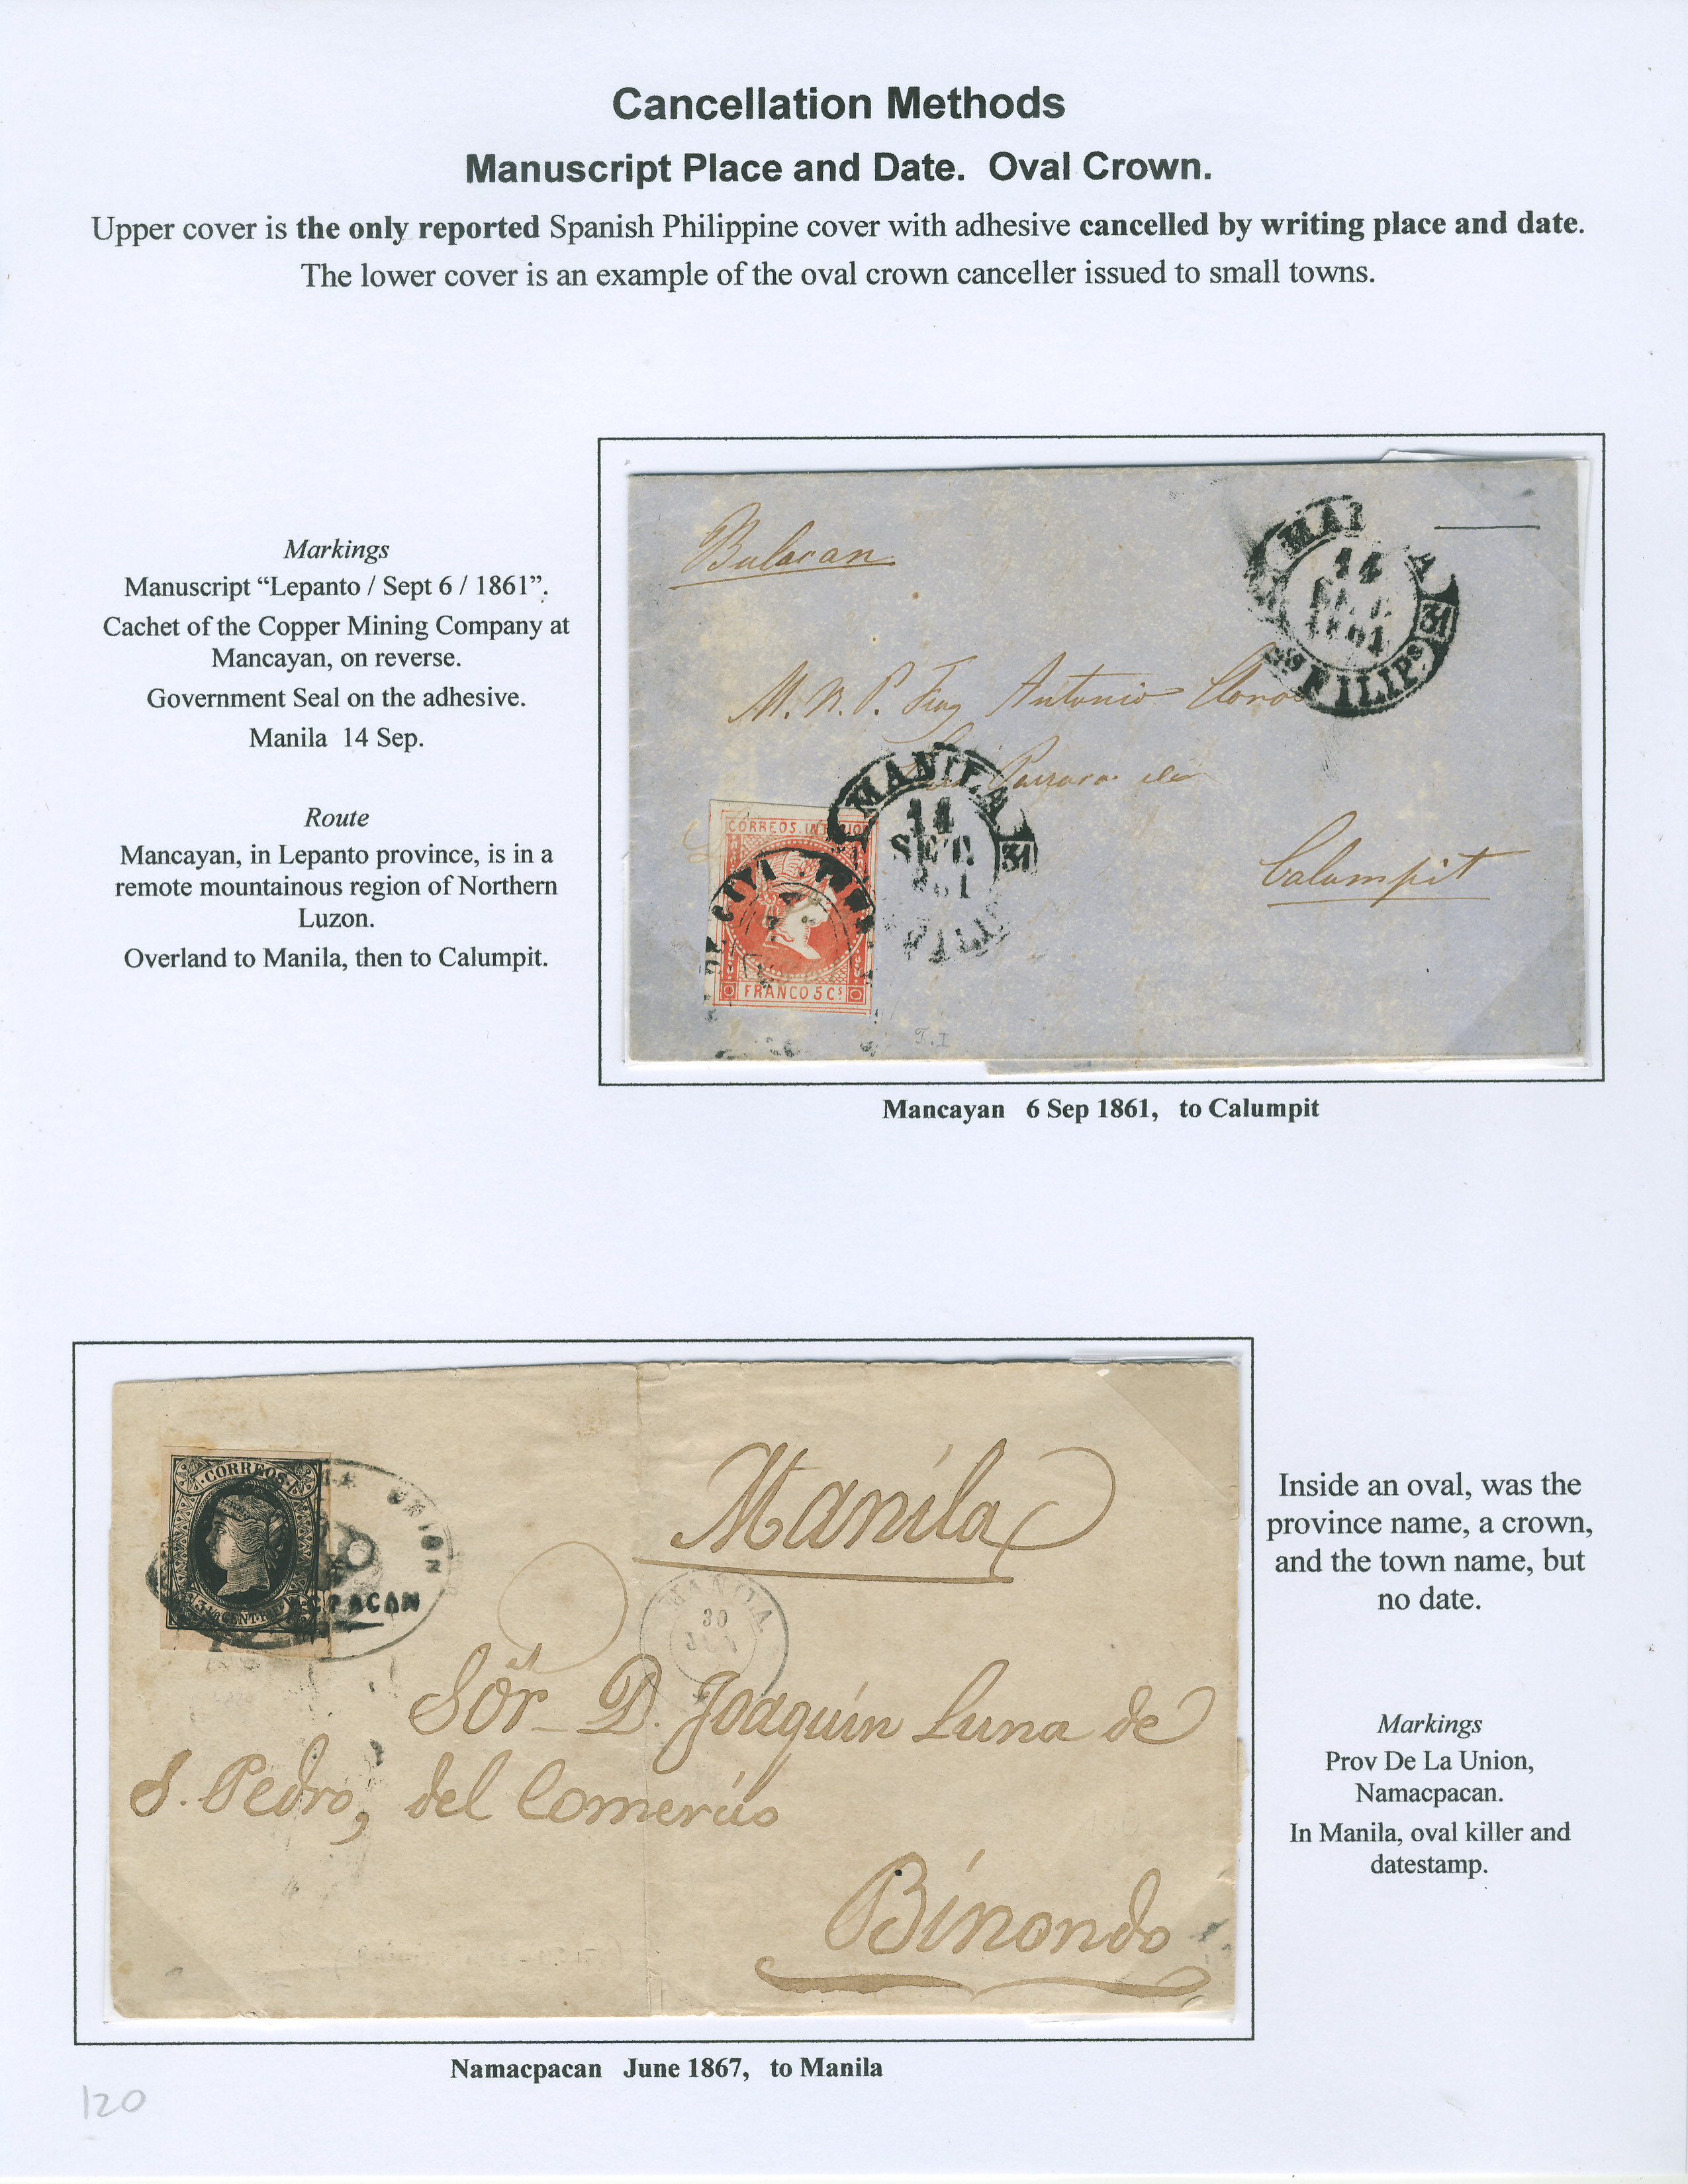 Cancellation Methods
Manuscript Place and Date. Oval Crown.
Upper cover is the only reported Spanish Philippine cover with adhesive cancelled by writing place and date.
The lower cover is an example of the oval crown canceller issued to small towns.
Markings
Manuscript “Lepanto / Sept 6 / 1861”.
Cachet of the Copper Mining Company at
Mancayan, on reverse.
Government Seal on the adhesive.
Manila 14 Sep.
Route
Mancayan, in Lepanto province, is in a
remote mountainous region of Northern
Luzon.
Overland to Manila, then to Calumpit.
Bulacan
14
31
FILIPs
M. R. P. Fray Antonio
MANILA
14
SET.
31
Calumpit
CORREOS. INTERIOR
FRANCO 5 Cs
T.I
Mancayan 6 Sep 1861, to Calumpit
CORREOS
UNION
CPACAN
Manila
MANILA
30
Sor D. Joaquín Luna de
S. Pedro, del Comercio
Binondo
Inside an oval, was the
province name, a crown,
and the town name, but
no date.
Markings
Prov De La Union,
Namacpacan.
In Manila, oval killer and
datestamp.
Namacpacan June 1867, to Manila
120